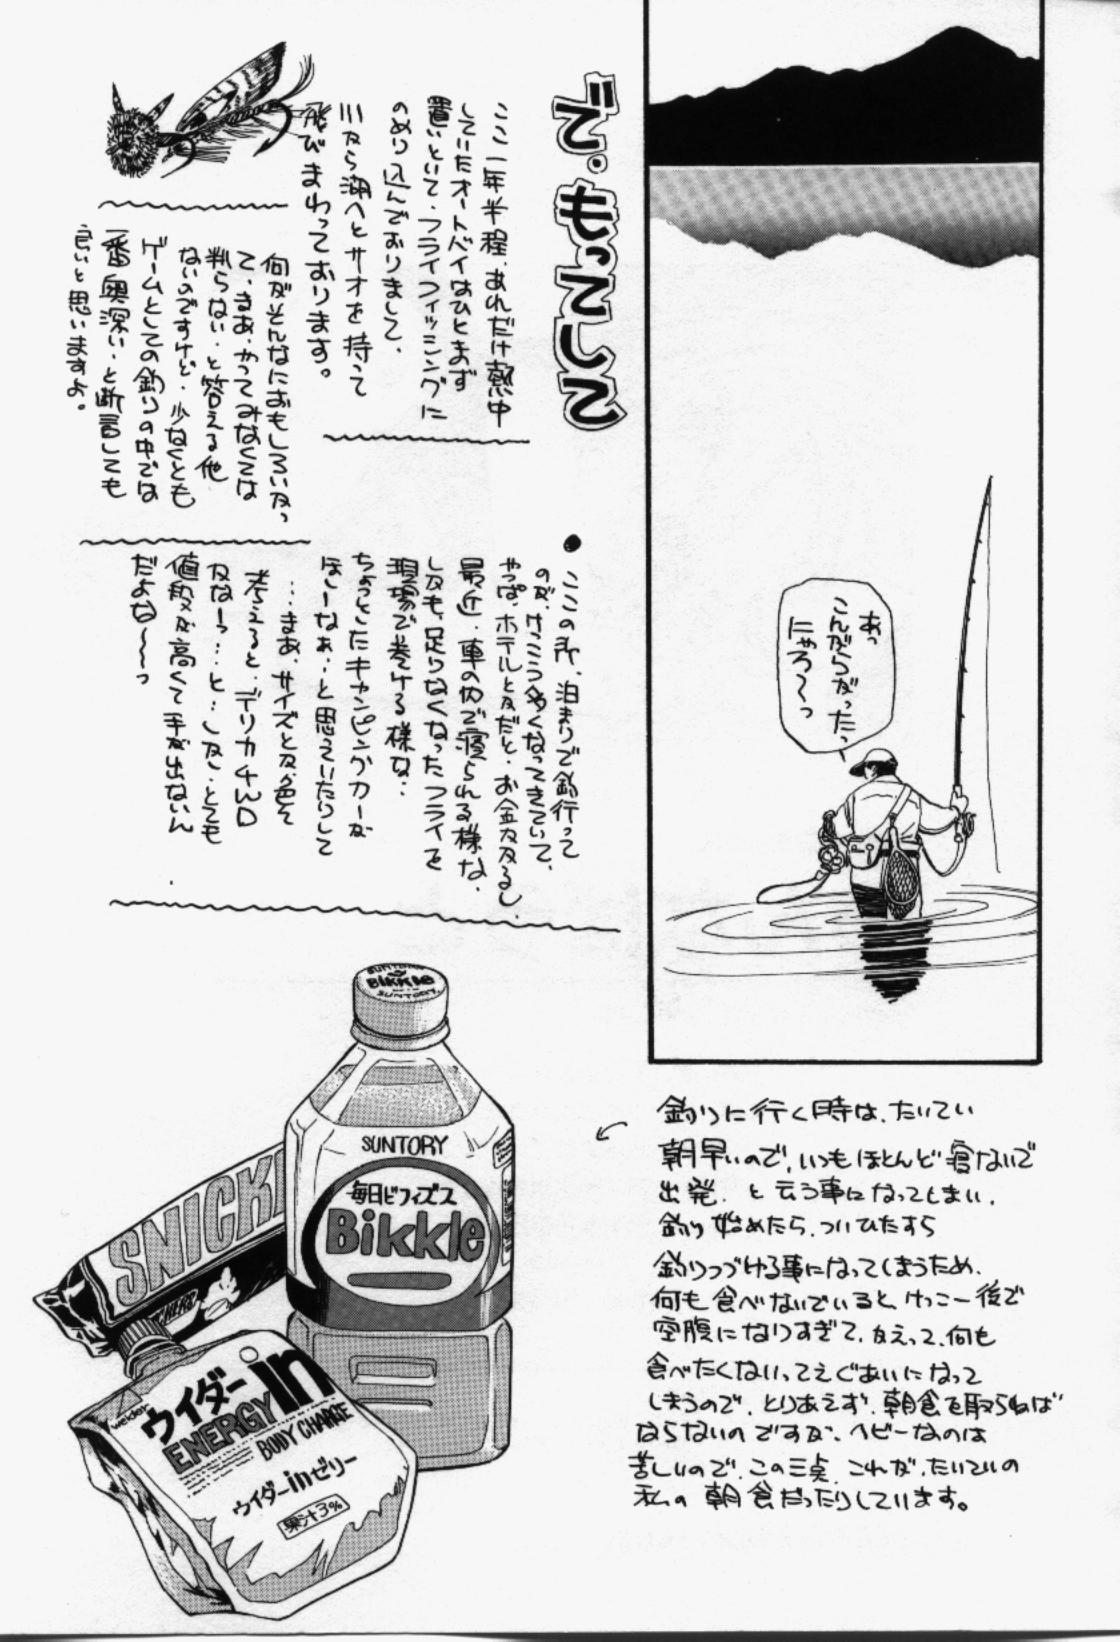 で・もってして
ここ一年半程、あれだけ熱中
していたオートバイはひとまず
置いといて・フライフィッシングに
のめり込んでおりまして、
川から湖へとサオを持って
飛びまわっております。
何がそんなにおもしろいかっ
て、まあ・やってみなくては
判らない・と答える他
ないのですけど・少なくとも
ゲームとしての釣りの中では
一番奥深い・と断言しても
良いと思いますよ。
あっ
こんがらがったっ
にゃろ〜っ
●ここの所、泊まりで釣行って
のが、けっこう多くなってきていて、
やっぱ、ホテルとかだと・お金かかるし、
最近・車の内で寝られる様な、
しかも、足りなくなったフライを
現場で巻ける様な‥
ちょっとしたキャンピングカーが
ほしーなぁ‥と思えていたりして
…まあ、サイズとか色々
考えると、デリカ4WD
かなーっ…と…しかし、とても
値段が高くて手が出ないん
だよな〜〜っ
釣りに行く時は、たいてい
朝早いので、いつもほとんど寝ないで
出発、と云う事になってしまい、
釣り始めたら、ついひたすら
釣りつづける事になってしまうため、
何も食べないでいると、けっこー後で
空腹になりすぎて、かえって、何も
食べたくないってえぐあいになって
しまうので、とりあえず、朝食を取らねば
ならないのですが、ヘビーなのは
苦しいので、この三点、これが、たいていの
私の朝食だったりしています。
SUNTORY
Bikkle
SUNTORY
SUNTORY
毎日ビフィズス
Bikkle
SNICK
weider
ウイダーin
ENERGY
BODY CHARGE
ウイダーinゼリー
果汁3%